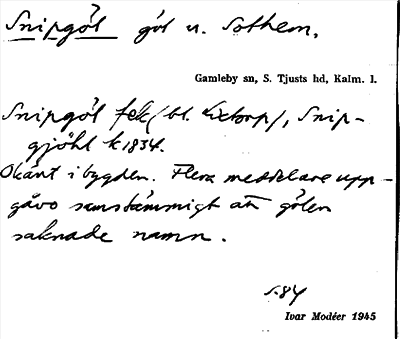 Snipgöl göl n. Sothem,
Gamleby sn, S. Tjusts hd, Kalm. l.
Snipgöl fek (bl. Lixtorp), Snip-
gjöhl k 1834.
Okänt i bygden. Flera meddelare upp-
gåvo samstämmigt att gölen
saknade namn.
s. 84
Ivar Modéer 1945